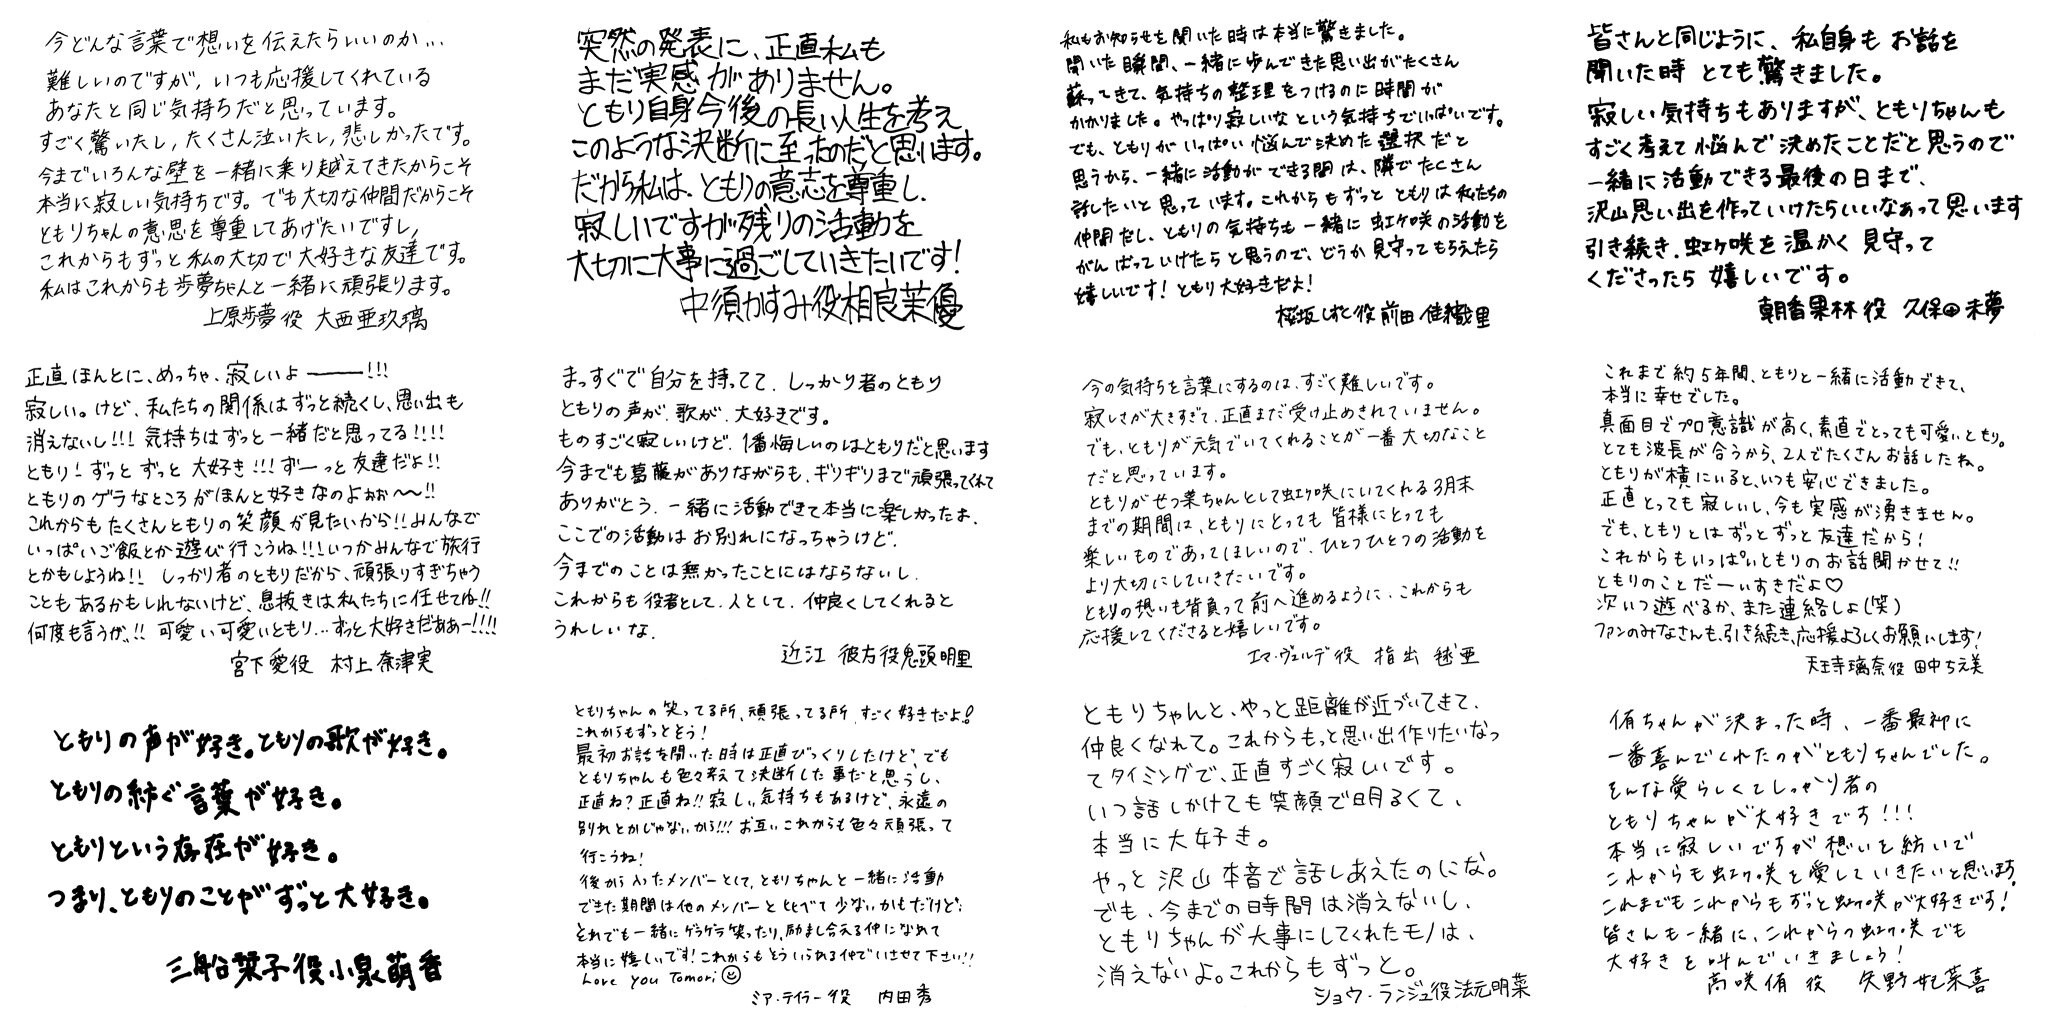 今どんな言葉で想いを伝えたらいいのか...
難しいのですが、いつも応援してくれている
あなたと同じ気持ちだと思っています。
すごく驚いたし、たくさん泣いたし、悲しかったです。
今までいろんな壁を一緒に乗り越えてきたからこそ
本当に寂しい気持ちです。でも大切な仲間だからこそ
ともりちゃんの意思を尊重してあげたいですし、
これからもずっと私の大切で大好きな友達です。
私はこれからも歩夢ちゃんと一緒に頑張ります。
上原歩夢役 大西亜玖璃
突然の発表に、正直私も
まだ実感がありません。
ともり自身今後の長い人生を考え
このような決断に至ったのだと思います。
だから私は、ともりの意志を尊重し、
寂しいですが残りの活動を
大切に大事に過ごしていきたいです!
中須かすみ役相良茉優
私もお知らせを聞いた時は本当に驚きました。
聞いた瞬間、一緒に歩んできた思い出がたくさん
蘇ってきて、気持ちの整理をつけるのに時間が
かかりました。やっぱり寂しいなという気持ちでいっぱいです。
でも、ともりがいっぱい悩んで決めた選択だと
思うから、一緒に活動ができる間は、隣でたくさん
話したいと思っています。これからもずっとともりは私たちの
仲間だし、ともりの気持ちも一緒に虹ヶ咲の活動を
がんばっていけたらと思うので、どうか見守ってもらえたら
嬉しいです!ともり大好きだよ!
桜坂しずく役前田佳織里
皆さんと同じように、私自身もお話を
聞いた時とても驚きました。
寂しい気持ちもありますが、ともりちゃんも
すごく考えて悩んで決めたことだと思うので
一緒に活動できる最後の日まで、
沢山思い出を作っていけたらいいなあって思います
引き続き、虹ヶ咲を温かく見守って
くださったら嬉しいです。
朝香果林役 久保田未夢
正直ほんとに、めっちゃ、寂しいよ━━━!!!
寂しい。けど、私たちの関係はずっと続くし、思い出も
消えないし!!!気持ちはずっと一緒だと思ってる!!!!
ともり!ずっとずっと大好き!!!ずーっと友達だよ!!
ともりのゲラなところがほんと好きなのよぉぉ〜〜!!
これからもたくさんともりの笑顔が見たいから!!みんなで
いっぱいご飯とか遊び行こうね!!!いつかみんなで旅行
とかもしようね!!しっかり者のともりだから、頑張りすぎちゃう
こともあるかもしれないけど、息抜きは私たちに任せてね!!
何度も言うが、!!可愛い可愛いともり...ずっと大好きだああー!!!!
宮下愛役 村上奈津実
まっすぐで自分を持ってて、しっかり者のともり
ともりの声が、歌が、大好きです。
ものすごく寂しいけど、1番悔しいのはともりだと思います
今までも葛藤がありながらも、ギリギリまで頑張ってくれて
ありがとう。一緒に活動できて本当に楽しかったよ。
ここでの活動はお別れになっちゃうけど、
今までのことは無かったことにはならないし、
これからも役者として、人として、仲良くしてくれると
うれしいな。
近江 彼方役鬼頭明里
今の気持ちを言葉にするのは、すごく難しいです。
寂しさが大きすぎて、正直まだ受け止めきれていません。
でも、ともりが元気でいてくれることが一番大切なこと
だと思っています。
ともりがせつ菜ちゃんとして虹ヶ咲にいてくれる3月末
までの期間は、ともりにとっても皆様にとっても
楽しいものであってほしいので、ひとつひとつの活動を
より大切にしていきたいです。
ともりの想いも背負って前へ進めるように、これからも
応援してくださると嬉しいです。
エマ・ヴェルデ役 指出毬亜
これまで約5年間、ともりと一緒に活動できて、
本当に幸せでした。
真面目でプロ意識が高く、素直でとっても可愛いともり。
とても波長が合うから、2人でたくさんお話したね。
ともりが横にいると、いつも安心できました。
正直とっても寂しいし、今も実感が湧きません。
でも、ともりとはずっとずっと友達だから!
これからもいっぱいともりのお話聞かせて!!
ともりのことだーいすきだよ♡
次いつ遊べるか、また連絡しよ(笑)
ファンのみなさんも、引き続き、応援よろしくお願いします!
天王寺璃奈役 田中ちえ美
ともりの声が好き。ともりの歌が好き。
ともりの紡ぐ言葉が好き。
ともりという存在が好き。
つまり、ともりのことがずっと大好き。
三船栞子役小泉萌香
ともりちゃんの笑ってる所、頑張ってる所、すごく好きだよ!
これからもずっとそう!
最初お話を聞いた時は正直びっくりしたけど、でも
ともりちゃんも色々考えて決断した事だと思うし、
正直ね?正直ね!!寂しい気持ちもあるけど、永遠の
別れとかじゃないから!!!お互いこれからも色々頑張って
行こうね!
後から入ったメンバーとして、ともりちゃんと一緒に活動
できた期間は他のメンバーと比べて少ないかもだけど、
それでも一緒にゲラゲラ笑ったり、励まし合える仲になれて
本当に嬉しいです!これからもそういられる仲でいさせて下さい!!
Love you Tomori☺
ミア・テイラー役 内田秀
ともりちゃんと、やっと距離が近づいてきて、
仲良くなれて。これからもっと思い出作りたいなっ
てタイミングで、正直すごく寂しいです。
いつ話しかけても笑顔で明るくて、
本当に大好き。
やっと沢山本音で話しあえたのにな。
でも、今までの時間は消えないし、
ともりちゃんが大事にしてくれたモノは、
消えないよ。これからもずっと。
ショウ・ランジュ役法元明菜
侑ちゃんが決まった時、一番最初に
一番喜んでくれたのがともりちゃんでした。
そんな愛らしくてしっかり者の
ともりちゃんが大好きです!!!
本当に寂しいですが想いを紡いで
これからも虹ヶ咲を愛していきたいと思います。
これまでもこれからもずっと虹ヶ咲が大好きです!
皆さんも一緒に、これからの虹ヶ咲でも
大好きを叫んでいきましょう!
高咲侑役 矢野妃菜喜